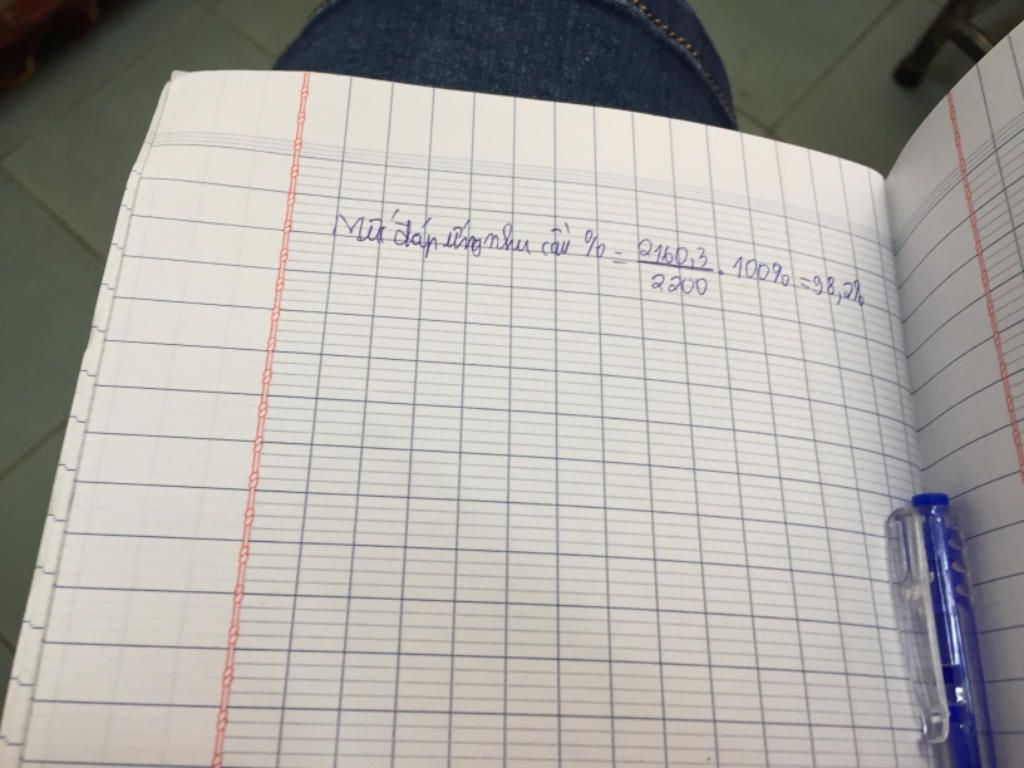 Mức đáp ứng nhu cầu % = 2160,3 / 2200 . 100% = 98,2%